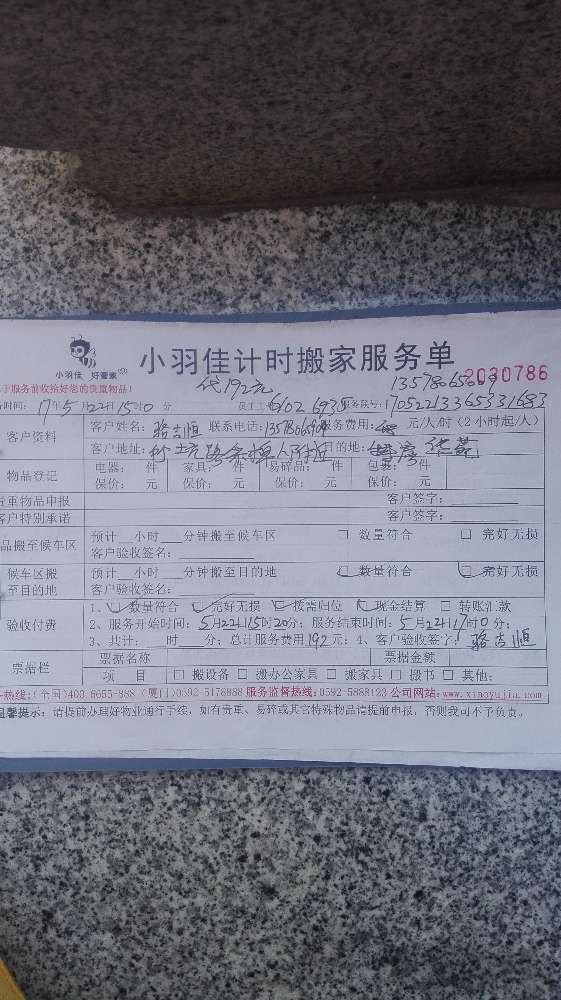 小羽佳 好管家
小羽佳计时搬家服务单 2030786
于服务前收拾好您的贵重物品!
代192元
时间: 17年5月22日15时0分 员工
客户资料
客户姓名: 骆吉恒 联系电话: 服务费用: 元/人/时(2小时起/人)
客户地址: 目的地:
物品登记
电器: 件 家具: 件 易碎品: 件 包裹: 件
保价: 元 保价: 元 保价: 元 保价: 元
贵重物品申报 客户签字:
客户特别承诺 客户签字:
品搬至候车区
预计__小时__分钟搬至候车区 □ 数量符合 □ 完好无损
客户验收签名:
候车区搬至目的地
预计__小时__分钟搬至目的地 数量符合 完好无损
客户验收签名:
验收付费
1、数量符合 完好无损 按需归位 现金结算 □ 转账汇款
2、服务开始时间: 5月22日15时20分; 服务结束时间: 5月22日17时0分;
3、共计: 时 分; 总计服务费用192元; 4、客户验收签字: 骆吉恒
票据栏
票据名称 票据金额
项 目 □ 搬设备 □ 搬办公家具 □ 搬家具 □ 搬书 □ 其他:
热线:(全国)400-6655-888 (厦门)0592-5178888 服务监督热线:0592-5888123 公司网站:www.xiaoyujia.com
温馨提示: 请提前办理好物业通行手续, 如有贵重、易碎或其它特殊物品请提前申报, 否则我司不予负责。